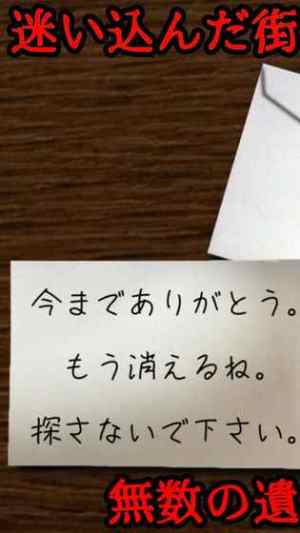 迷い込んだ街
今までありがとう。
もう消えるね。
探さないで下さい。
無数の遺